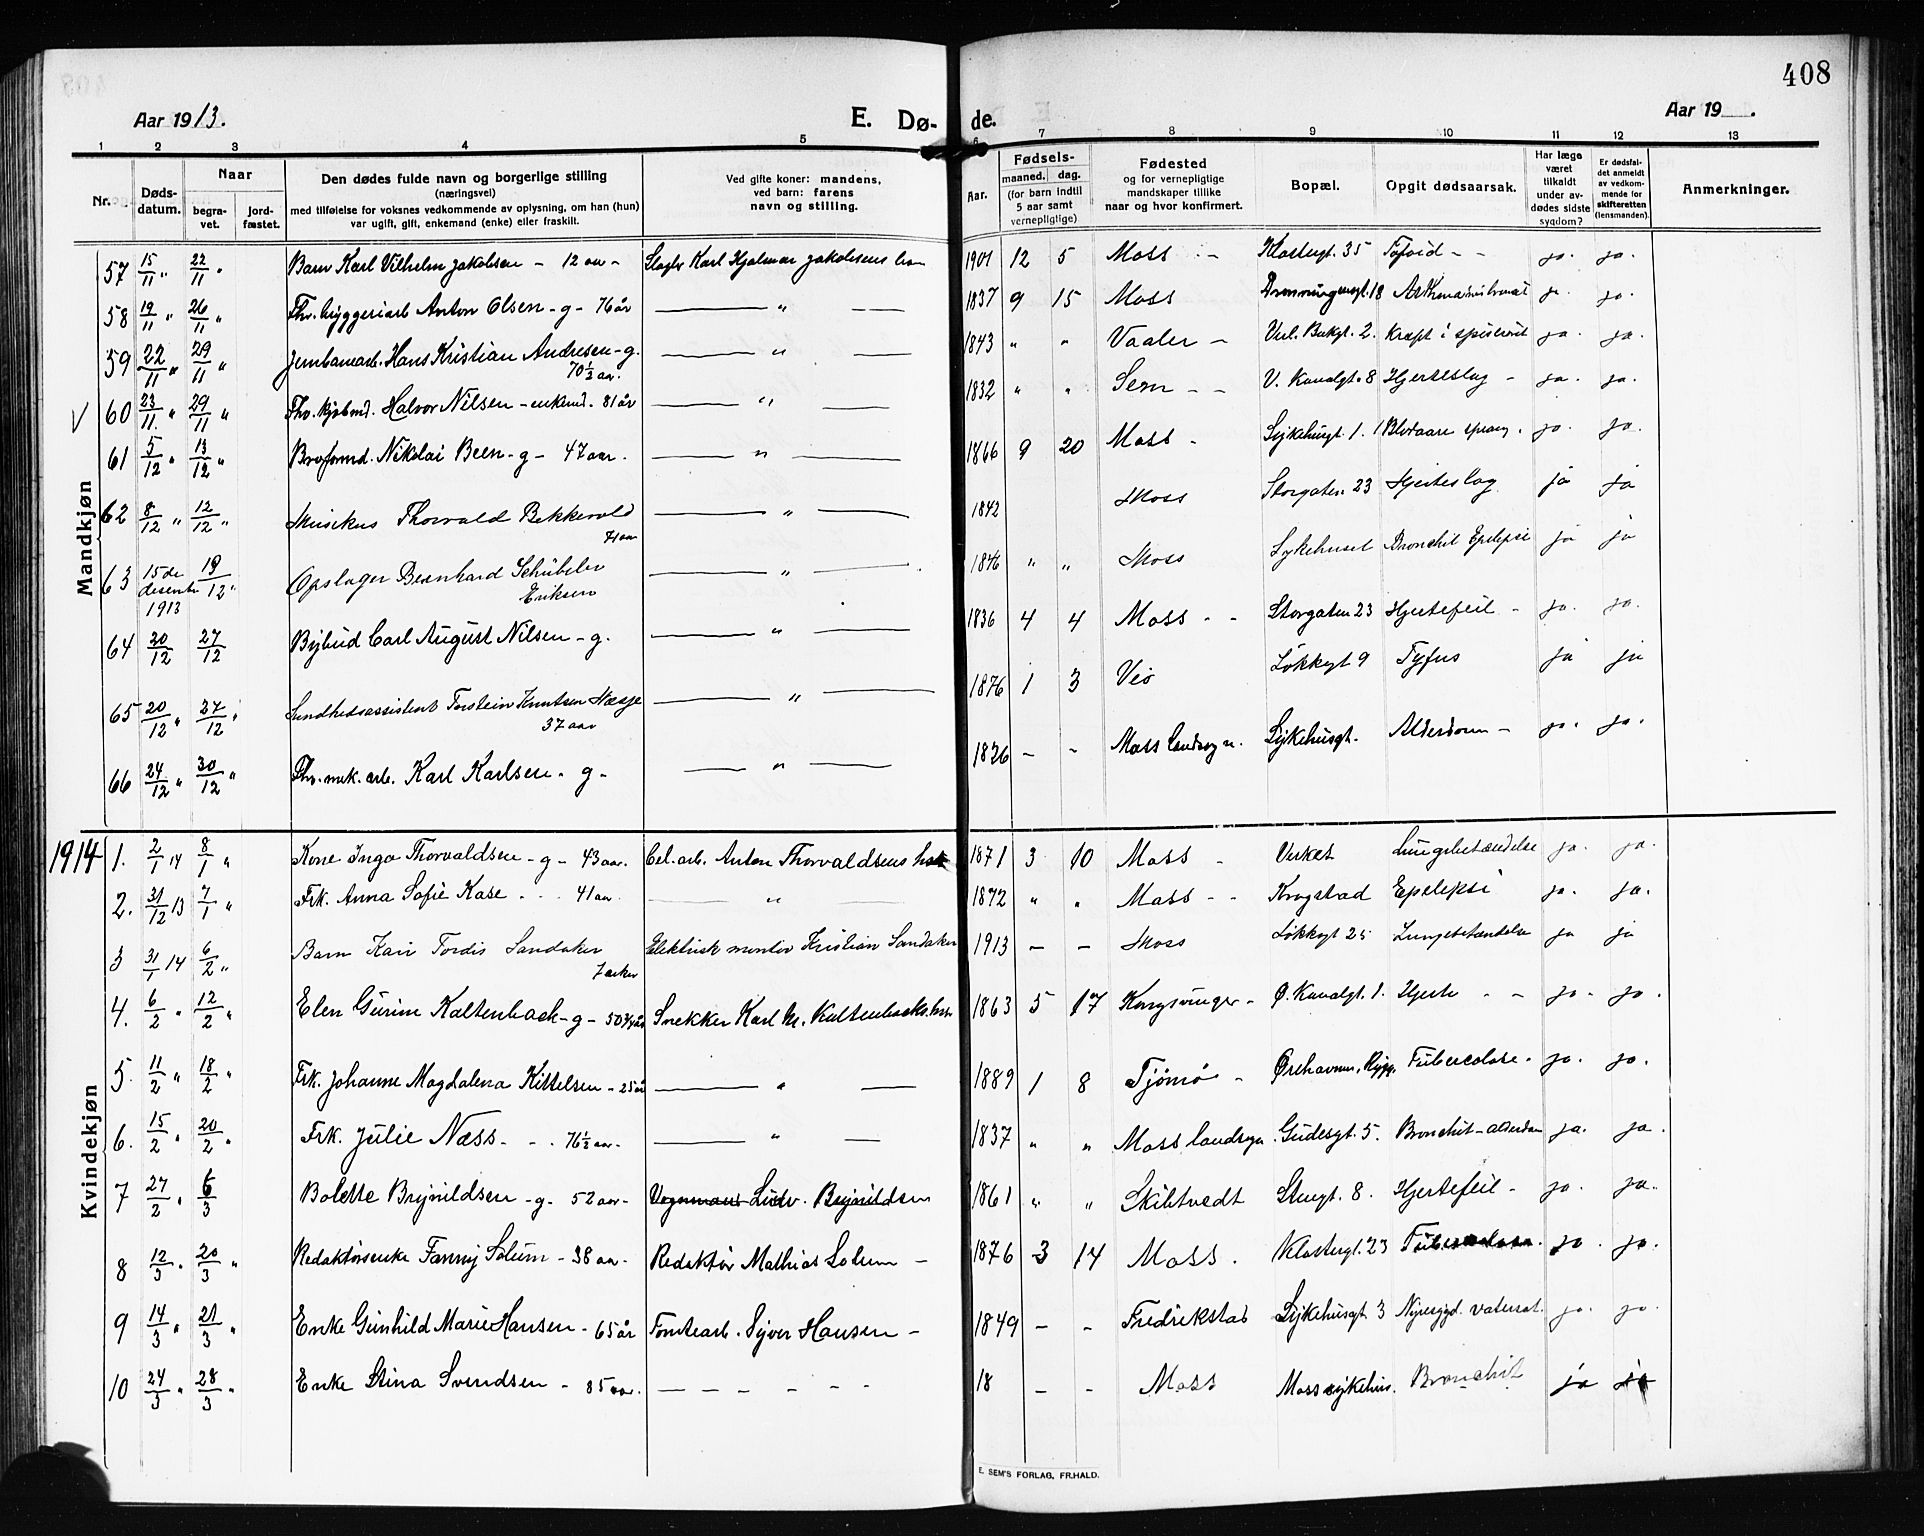 408
Aar 1913.
E. Dø- de.
Aar 19 .
1 2 3 4 5 6 7 8 9 10 11 12 13
Nr. Døds-datum. Naar begra-vet. jord-fæstet. Den dødes fulde navn og borgerlige stilling (næringsvei) med tilføielse for voksnes vedkommende av oplysning, om han (hun) var ugift, gift, enkemand (enke) eller fraskilt. Ved gifte koner: mandens, ved barn: farens navn og stilling. Aar. Fødsels- maaned. dag. (for barn indtil 5 aar samt vernepligtige) Fødested og for vernepligtige mandskaper tillike naar og hvor konfirmert. Bopæl. Opgit dødsaarsak. Har læge været tilkaldt under av-dødes sidste sygdom? Er dødsfal-det anmeldt av vedkom-mende for skifteretten (lensmanden). Anmerkninger.
Mandkjøn
57 15/11 " 22/11 " Barn Karl Vilhelm Jakobsen - 12 aar - Karl Hjalmar Jakobsens 1901 12 5 Moss - Klostergt. 35 - - ja. ja.
58 19/11 " 26/11 " Fhv. bryggeriarb Anton Olsen - g - 76 år — " — 1837 9 15 Moss Dronningensgt. 18 ja. ja.
59 22/11 " 29/11 " Jernbanearb. Hans Kristian Andresen - g. 70 1/3 aar. — " — 1843 " " Vaaler - Verl. Bakgt. 2. Kræft i ja. ja.
V 60 23/11 " 29/11 " Fhv. kjøbmd. Halvor Nilsen - enkemd. 81 år — " — 1832 " " Sem - - V. Kanalgt. 8 Hjerteslag - ja. ja.
61 5/12 " 13/12 " Nikolai Been - g - 47 aar. — " — 1866 9 20 Moss - Sykehusgt. 1. Blodaare sprang. ja. ja.
62 8/12 " 12/12 " Musikus Thorvald Bekkevold 71 aar — " — 1842 Moss Storgaten 23 Hjerteslag ja ja
63 15de desembr 1913 19/12 " Opslager Bernhard Schübeler Eriksen — " — 1846 " " Moss Sykehuset Bronchit Epilepsi ja ja
64 20/12 27/12 Bybud Carl August Nilsen - g. — " — 1836 4 4 Moss - - Storgaten 23 Hjertefeil - ja. ja.
65 20/12 " 27/12 " Sundhedsassistent Torstein Knutsen Næsje 37 aar — " — 1876 1 3 Veø Løkkegt 9 Tyfus ja ja
66 24/12 " 30/12 " Fhv. mek. arb. Karl Karlsen - g - — " — 1826 - - Moss landsogn. Sykehusgt. Alderdom - ja. ja.
1914
Kvindekjøn
1. 2/1 14 8/1 " Kone Inga Thorvaldsen - g - 43 aar. Cel. arb. Anton Thorvaldsens 1871 3 10 Moss - Verket Lungebetændelse ja. ja.
2. 31/12 13 7/1 " Frk. Anna Sofie Kase - - - 41 aar. — " — 1872 " " Moss - - Krogstad Epelepsi ja. ja.
3 31/1 14 6/2 " Barn Kari Tordis Sandaker 7 uker Elektrisk montør Kristian Sandaker 1913 - - Moss Løkkegt 25 Lungebetændelse ja ja
4. 6/2 " 12/2 " Elen Gurine Kaltenback - g - 50 3/4 år Snekker Karl M. Kaltenbacks 1863 5 17 Kongsvinger - Ø. Kanalgt. 1. Hjerte - - ja - ja.
5. 11/2 " 18/2 " Frk. Johanne Magdalena Kittelsen - 25 år — " — 1889 1 8 Tjømø - Ørehavnen, Rygg. Tuberculose. ja. ja.
6. 15/2 " 20/2 " Frk. Julie Næss - - - 76 1/2 aar - — " — 1837 " " Moss landsogn. Gudesgt. 5. Bronchit - alderdom ja. ja.
7 27/2 " 6/3 Bolette Brynildsen - g - 52 aar - Vognmand Ludv. Brynildsen 1861 " " Skibtvedt Storgt. 8. Hjertefeil - ja. ja.
8 12/3 " 20/3 " Redaktørenke Fanny Solum - 38 aar - Redaktør Mathias Solum - 1876 3 14 Moss. Klostergt. 23 Tuberculose. ja. ja.
9 14/3 " 21/3 " Enke Gunhild Marie Hansen - 65 år Tomtearb. Syver Hansen - 1849 - - Fredrikstad Sykehusgt. 3 Nyresygd. vatersot. ja. ja.
10 24/3 " 28/3 " Enke Stina Svendsen - 85 aar. — — — — — — 18 - - Moss Moss sykehus. Bronchit ja ja
E. SEM'S FORLAG, FR.HALD.